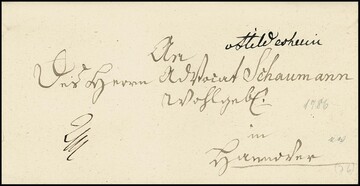 v Hildesheim
An
Des Herrn Advocat Schaumann
Wohlgeb.
1786
in
Hannover